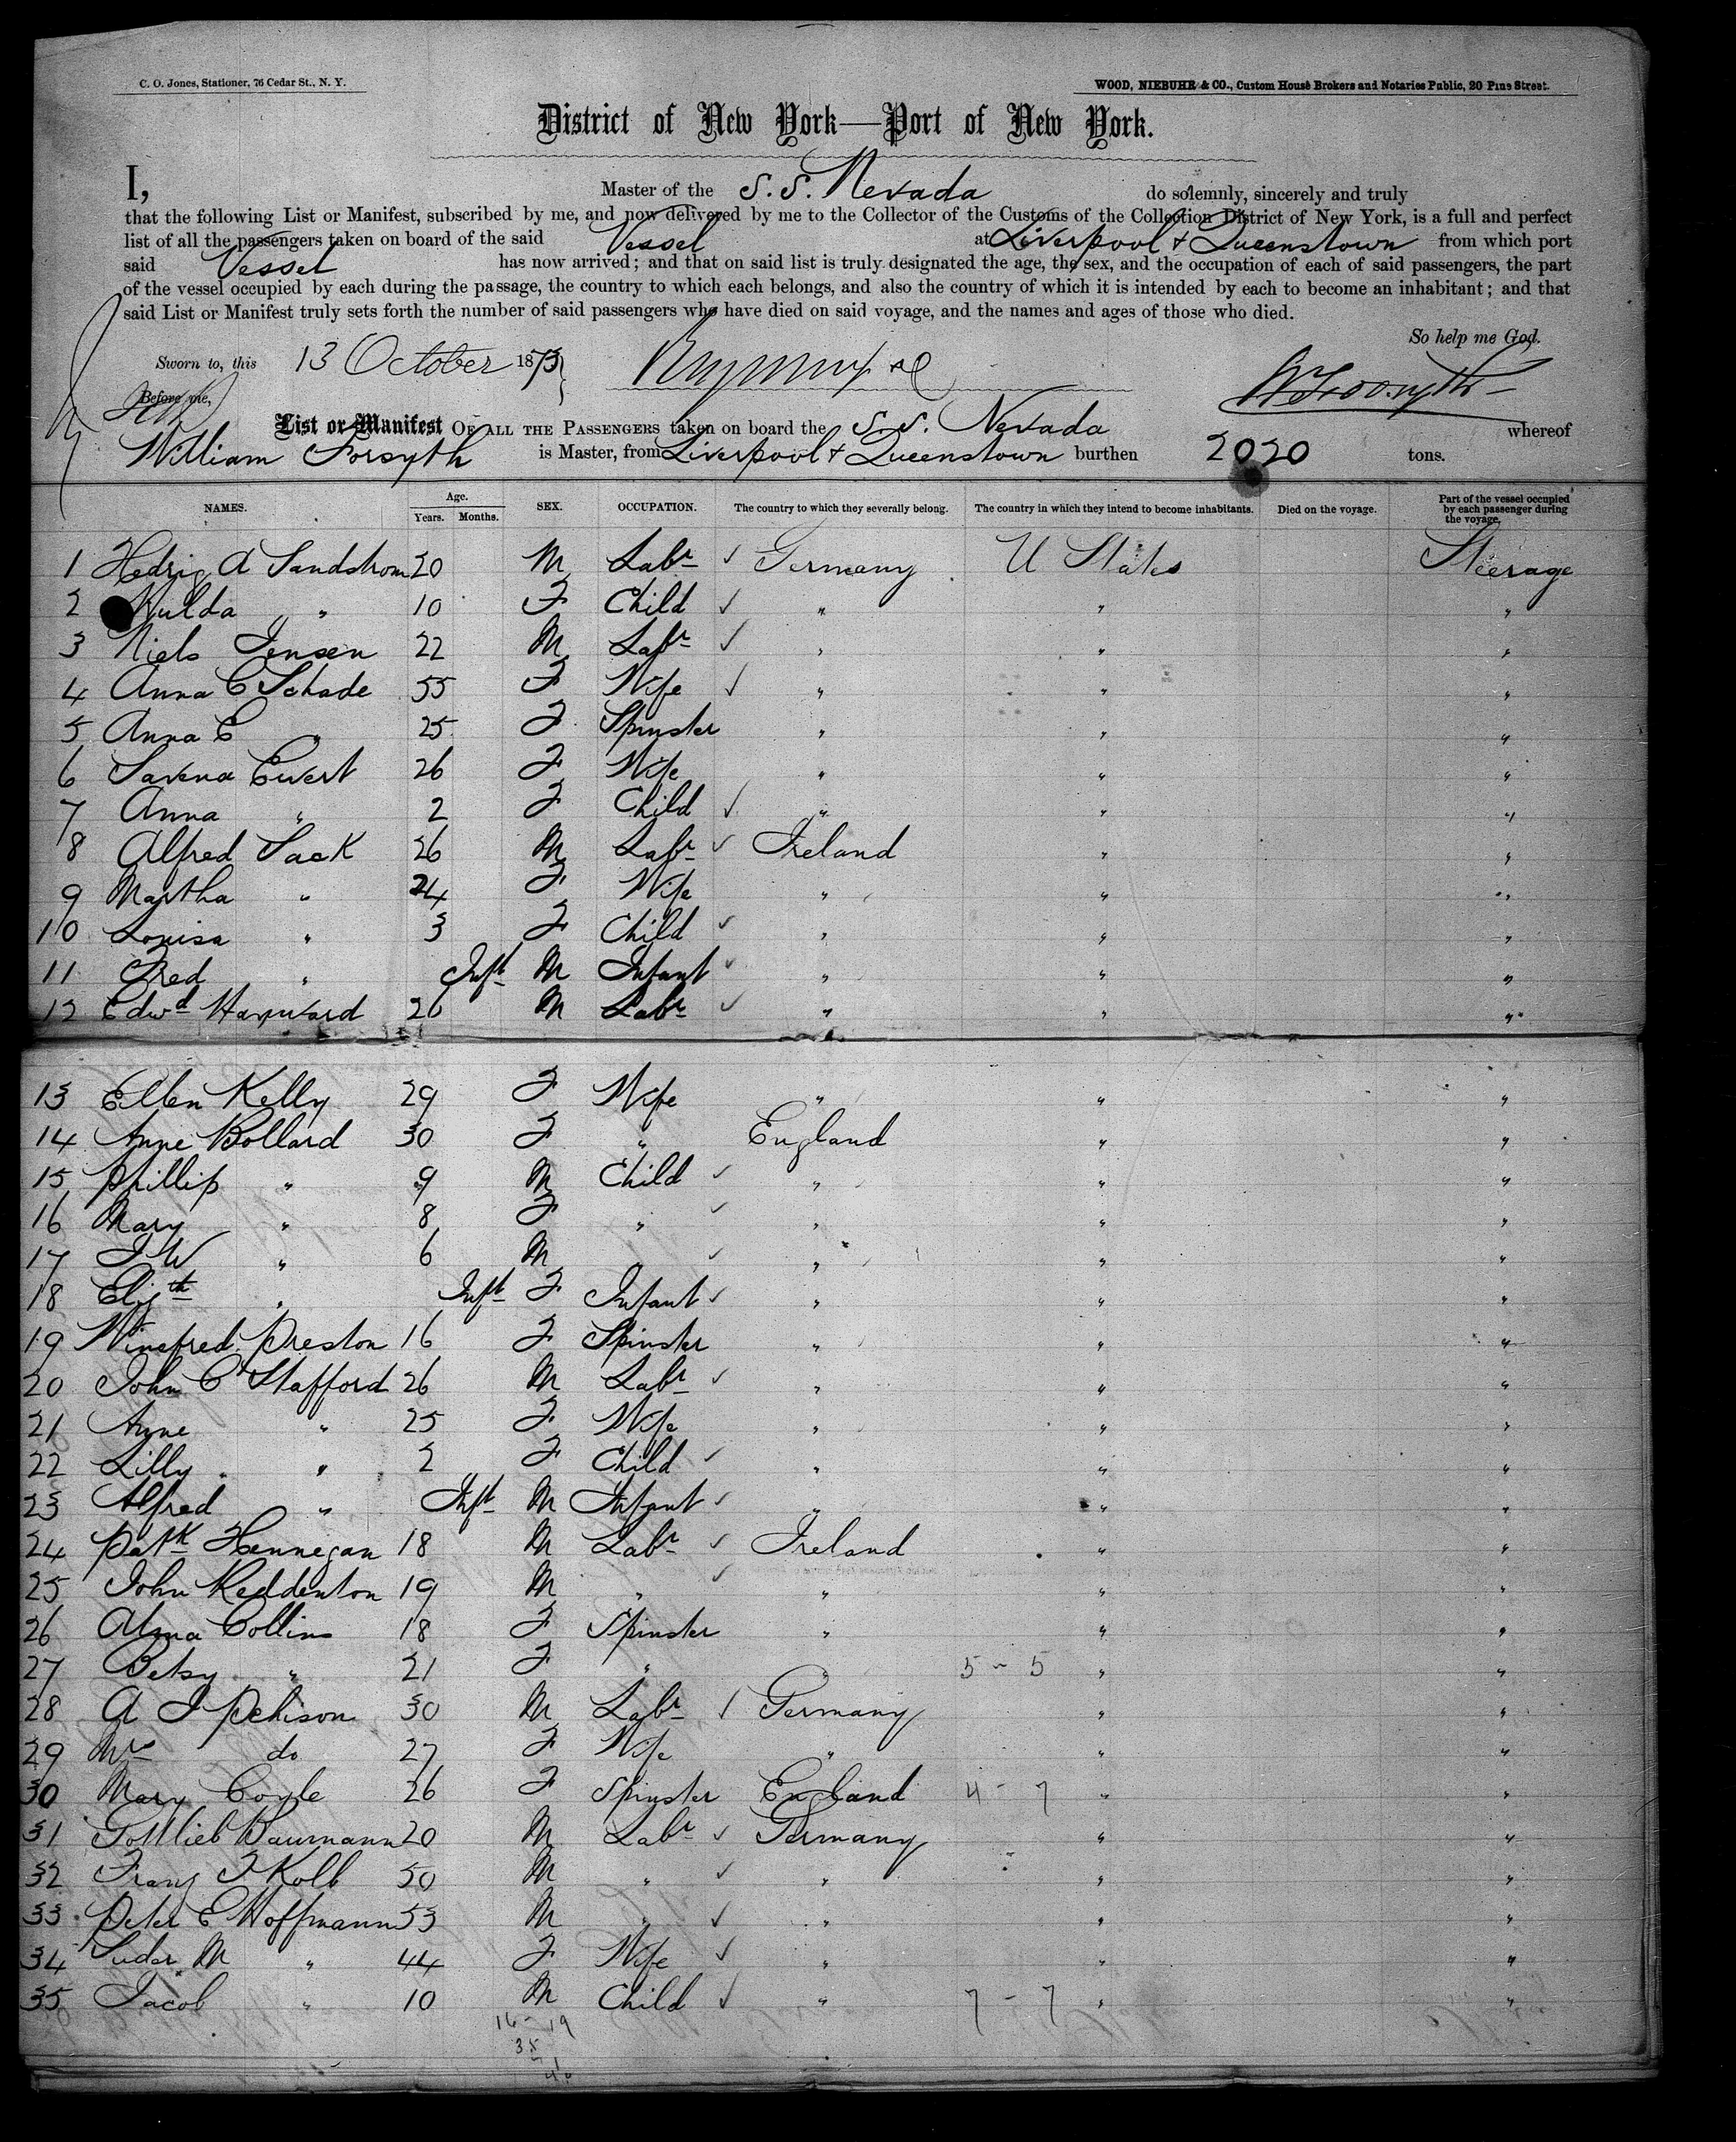 C. O. Jones, Stationer, 76 Cedar St., N. Y.
WOOD, NIEBUHR & CO., Custom House Brokers and Notaries Public, 20 Pine Street.
District of New York—Port of New York.
I, Master of the S. S. Nevada do solemnly, sincerely and truly
that the following List or Manifest, subscribed by me, and now delivered by me to the Collector of the Customs of the Collection District of New York, is a full and perfect
list of all the passengers taken on board of the said Vessel at Liverpool & Queenstown from which port
said Vessel has now arrived; and that on said list is truly designated the age, the sex, and the occupation of each of said passengers, the part
of the vessel occupied by each during the passage, the country to which each belongs, and also the country of which it is intended by each to become an inhabitant; and that
said List or Manifest truly sets forth the number of said passengers who have died on said voyage, and the names and ages of those who died.
So help me God.
Sworn to, this 13 October 1873
W Forsyth
Before me,
List or Manifest OF ALL THE PASSENGERS taken on board the S.S. Nevada whereof
William Forsyth is Master, from Liverpool & Queenstown burthen 2020 tons.
NAMES. Age. Years. Months. SEX. OCCUPATION. The country to which they severally belong. The country in which they intend to become inhabitants. Died on the voyage. Part of the vessel occupied by each passenger during the voyage.
1 Hedrig A Sandstrom 20 M Labr ✓ Germany U States Steerage
2 Hulda " 10 F Child ✓ " " "
3 Niels Jensen 22 M Labr ✓ " " "
4 Anna C Schade 55 F Wife ✓ " " "
5 Anna C " 25 F Spinster " " "
6 Savena Ewert 26 F Wife " " "
7 Anna " 2 F Child ✓ " " "
8 Alfred Sack 26 M Labr ✓ Ireland " "
9 Martha " 24 F Wife " " "
10 Louisa " 3 F Child ✓ " " "
11 Fred " Inft M Infant ✓ " " "
12 Edwd Haywood 26 M Labr ✓ " " "
13 Ellen Kelly 29 F Wife " " "
14 Anne Bollard 30 F " England " "
15 Phillip " 9 M Child ✓ " " "
16 Mary " 8 F " ✓ " " "
17 J W " 6 M " ✓ " " "
18 Elizth " Inft F Infant ✓ " " "
19 Winefred Preston 16 F Spinster " " "
20 John C Stafford 26 M Labr ✓ " " "
21 Anne " 25 F Wife " " "
22 Lilly " 2 F Child ✓ " " "
23 Alfred " Inft M Infant ✓ " " "
24 Patk Hennegan 18 M Labr ✓ Ireland " "
25 John Reddenton 19 M " ✓ " " "
26 Alma Collins 18 F Spinster " " "
27 Betsy " 21 F " " 5 - 5 " "
28 A J 30 M Labr ✓ Germany " "
29 Mrs do 27 F Wife " " "
30 Mary Coyle 26 F Spinster England 4 - 7 " "
31 Gottlieb Baumann 20 M Labr ✓ Germany " "
32 Franz F Kolb 50 M " ✓ " " "
33 Peter E Hoffmann 53 M " ✓ " " "
34 M " 44 F Wife ✓ " " "
35 Jacob " 10 M Child ✓ " 7 - 7 " "
16 - 19
35